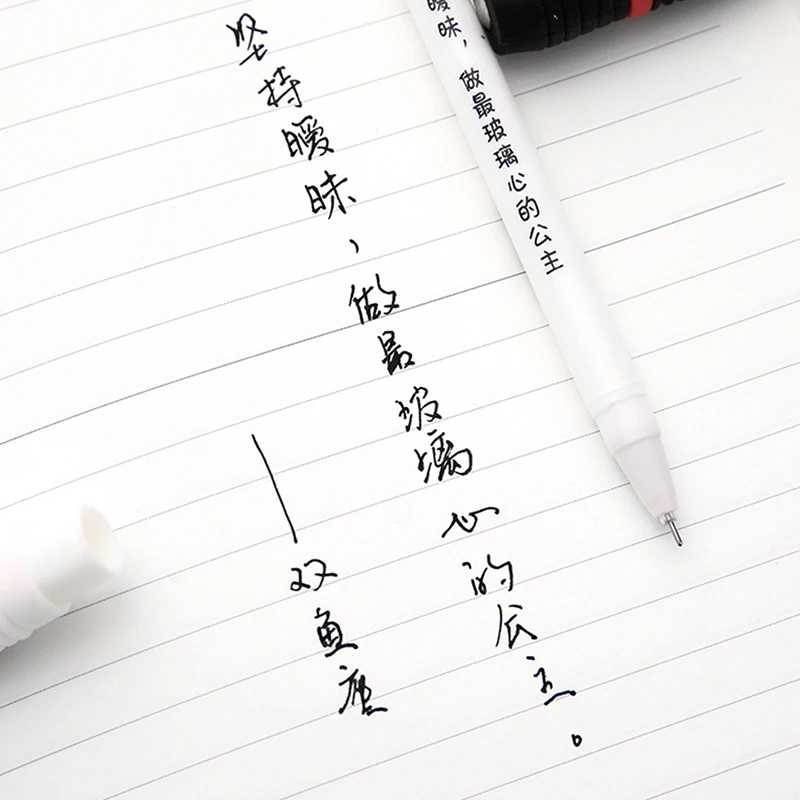 坚持暧昧，做最玻璃心的公主。
——双鱼座
暧昧，做最玻璃心的公主